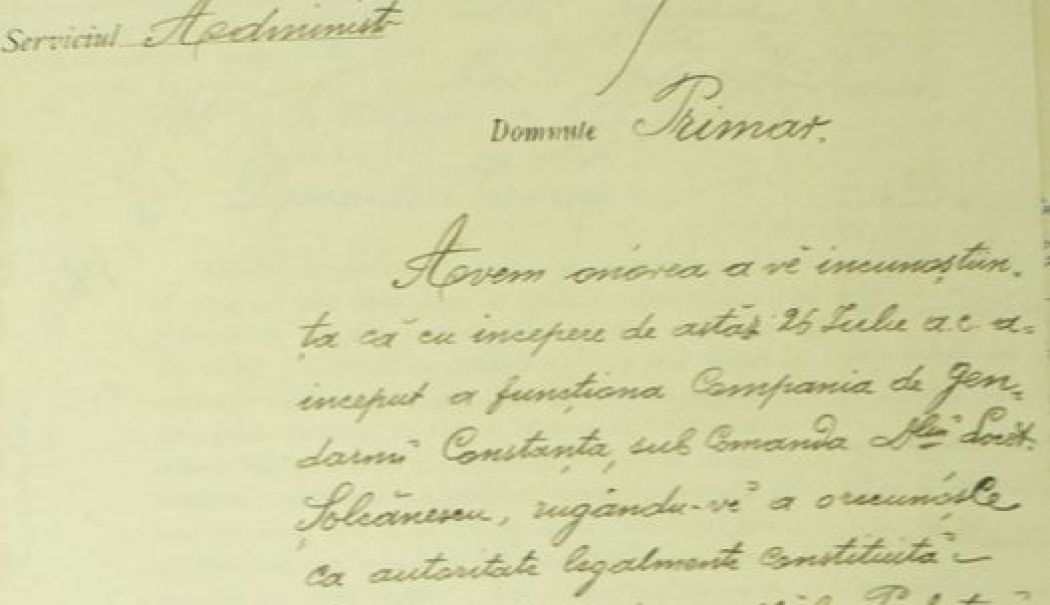 Serviciul Administ
Domnule Primar.
Avem onórea a vĕ incunoştiin-
ţa că cu incepere de astăzĭ 26 Iulie a c a=
inceput a funcţiona Compania de Jen-
darmĭ Constanţa, sub Comanda Dluĭ Locot.
Şolcănescu, rugându-vĕ a o recunóşte
ca autoritate legalmente constituită